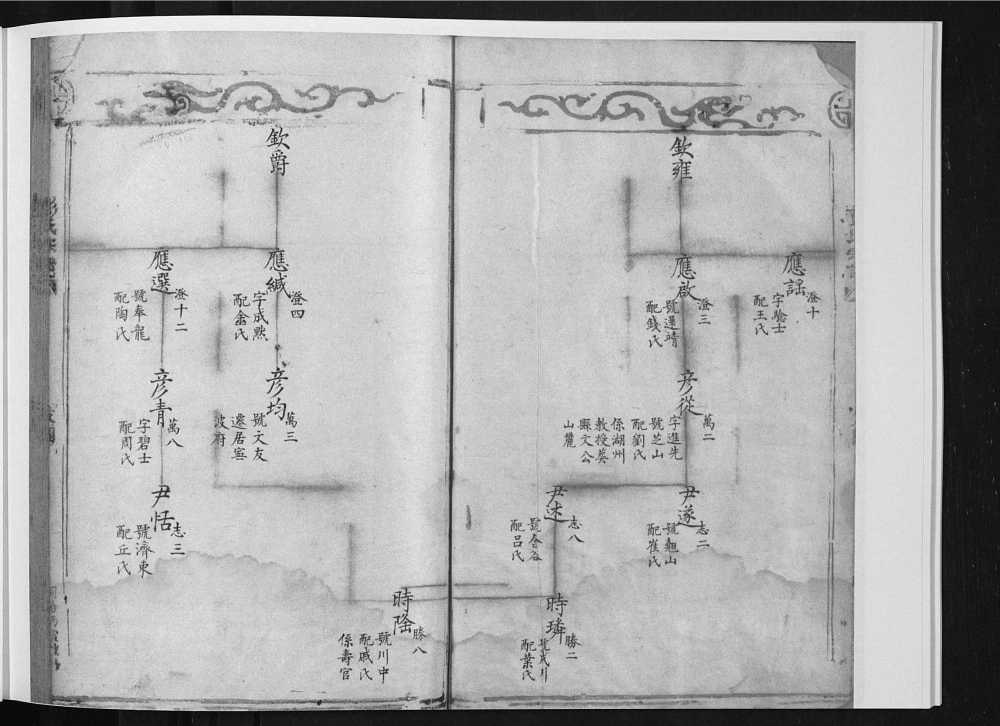 欽雍
應謡
澄十
字騐士
配王氏
應啟
澄三
號還靖
配錢氏
彦從
萬二
字進先
號芝山
配劉氏
係湖州
教授葵
縣文公
山麓
尹遂
志二
號翹山
配崔氏
尹述
志八
號唅谷
配呂氏
時璘
勝二
號戎川
配葉氏
時隆
勝八
號川中
配戚氏
係壽官
欽爵
應緘
澄四
字成點
配俞氏
應選
澄十二
號奉龍
配陶氏
彦均
萬三
號文友
遷居寧
波府
彦青
萬八
字碧士
配周氏
尹恬
志三
號濟東
配丘氏